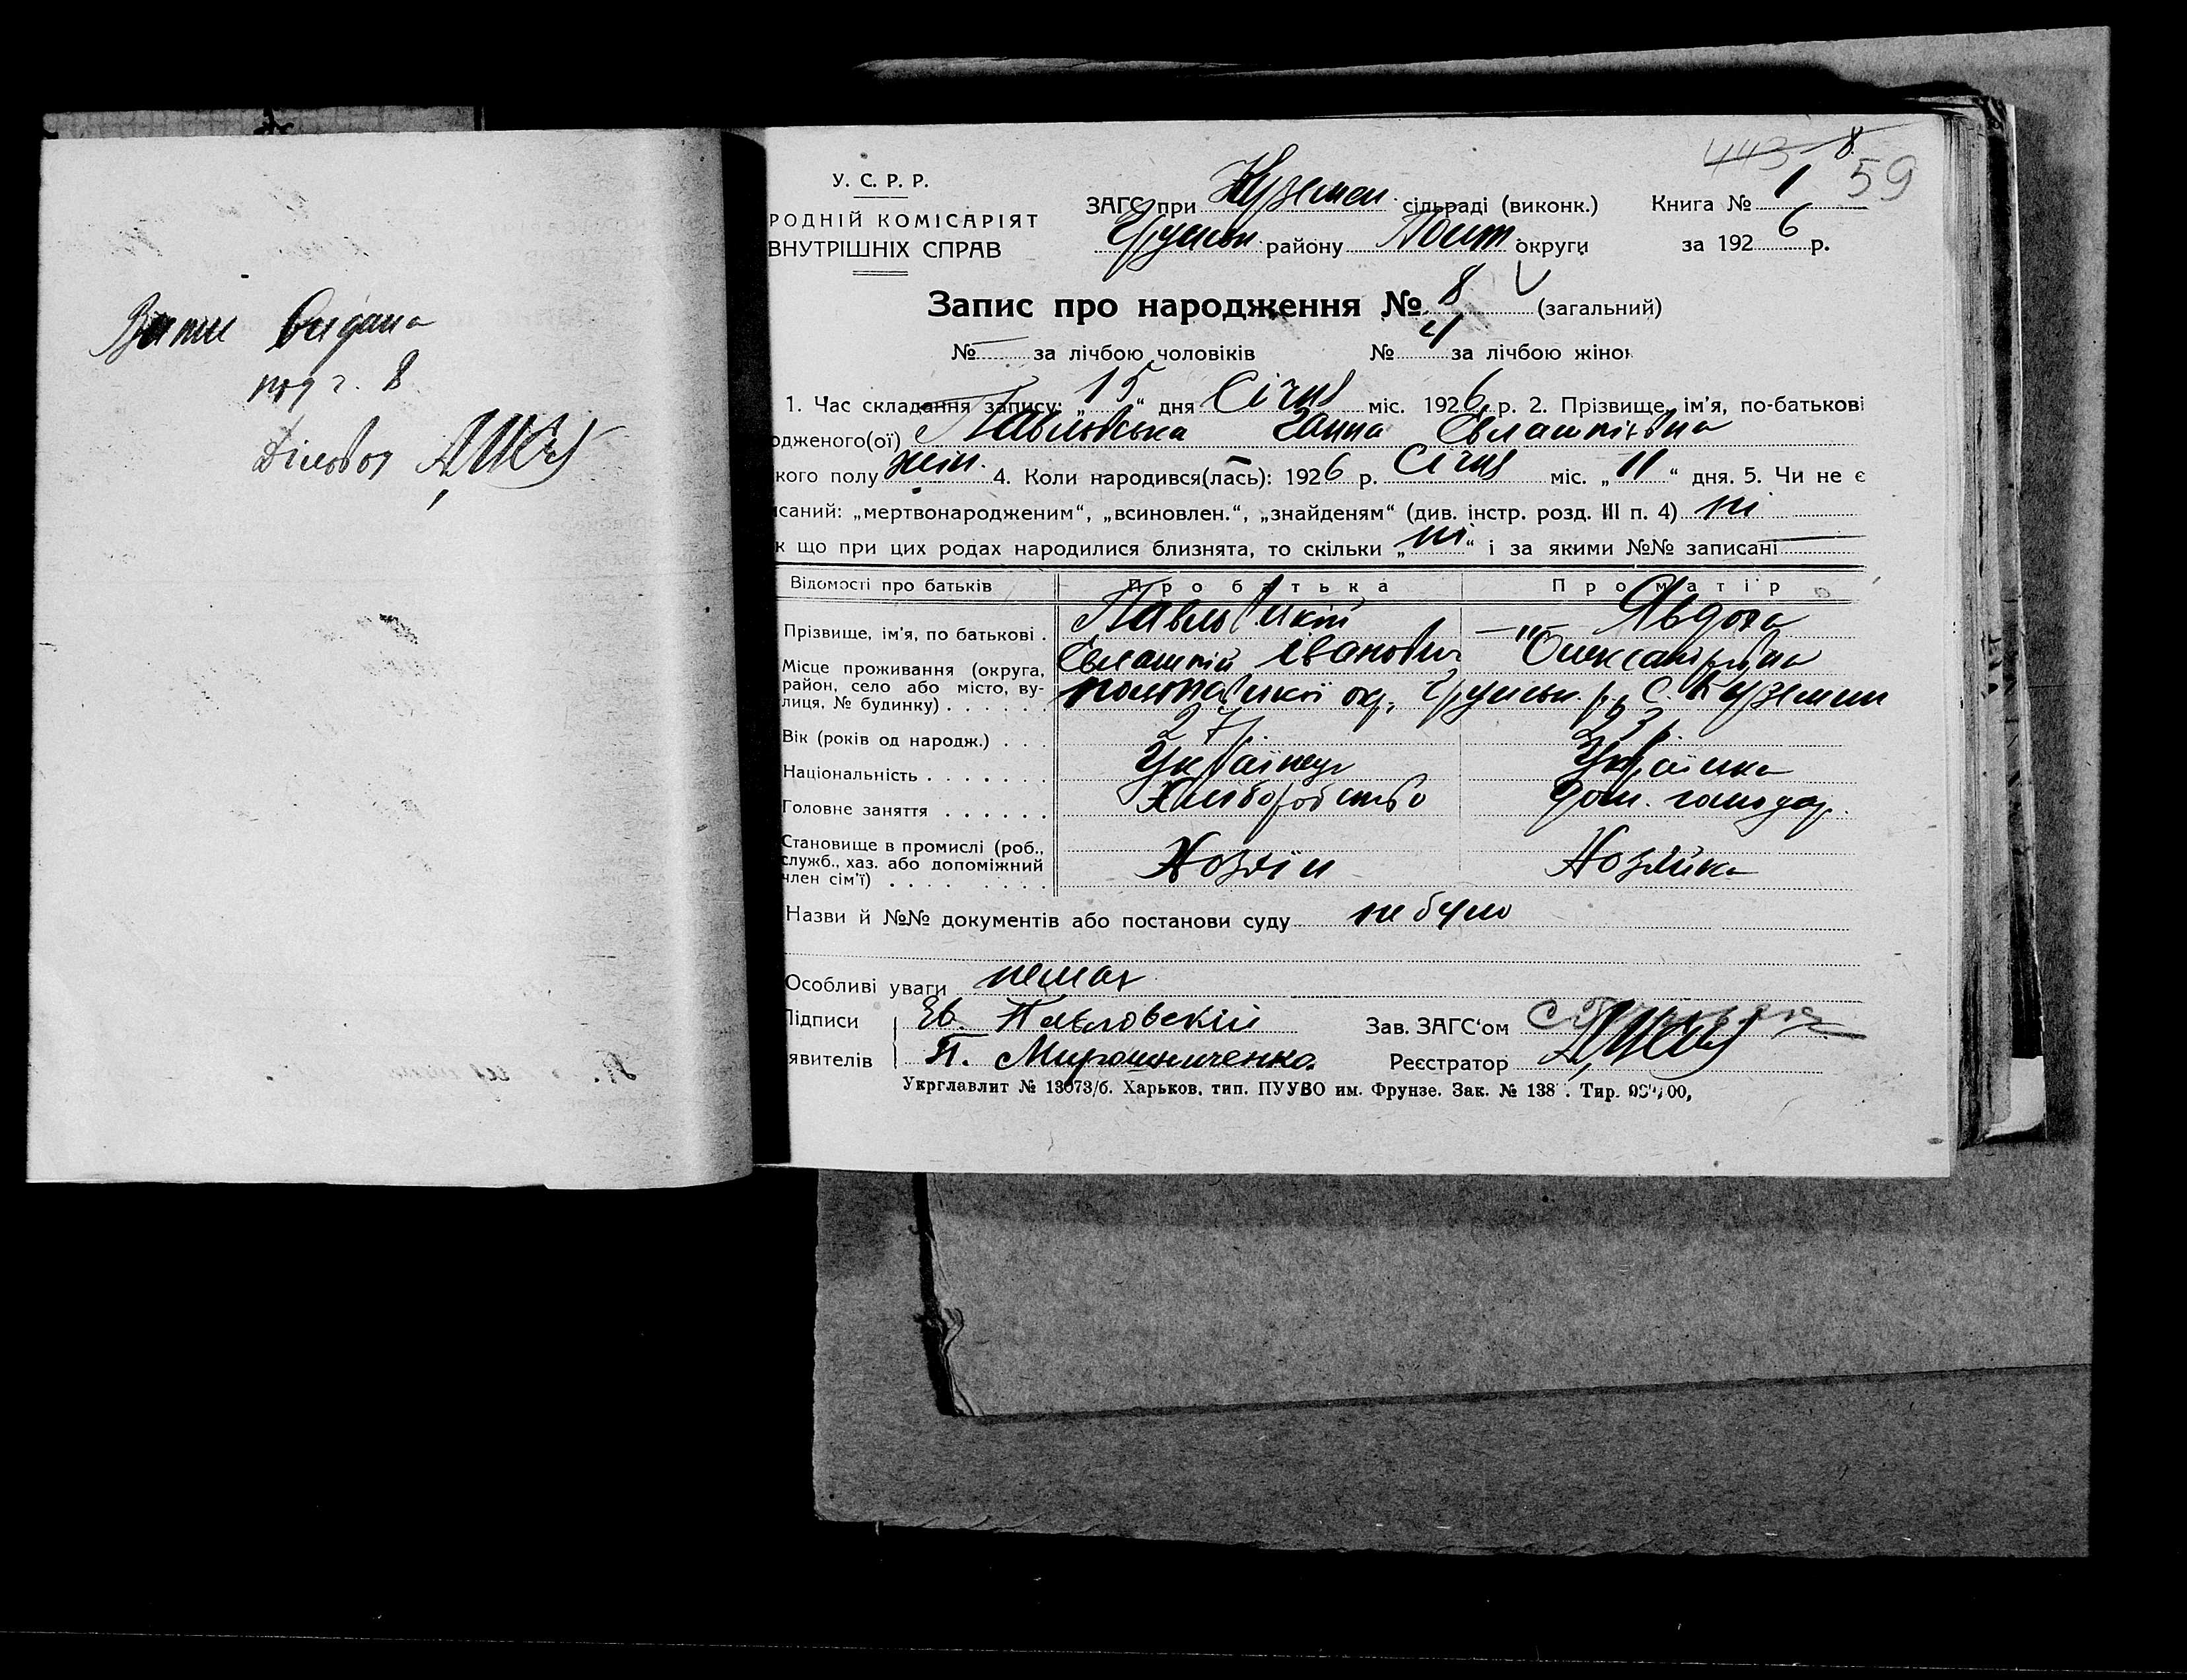 Витяг видано
під ч. 8
Діловод
443 8
59
У. С. Р. Р.
РОДНІЙ КОМІСАРІЯТ
ВНУТРІШНІХ СПРАВ
ЗАГС при Куземен. сільраді (виконк.) Книга № 1
Груньськ. району Полт. округи за 1926 р.
Запис про народження № 8 (загальний)
№ — за лічбою чоловіків № 4 за лічбою жінок
1. Час складання запису: „15“ дня Січня міс. 1926 р. 2. Прізвище, ім'я, по-батькові
одженого(ої) Павловська Ганна Євлампіївна
кого полу жін. 4. Коли народився(лась): 1926 р. Січня міс. „11“ дня. 5. Чи не є
исаний: „мертвонародженим“, „всиновлен.“, „знайденям“ (див. інстр. розд. III п. 4) ні
к що при цих родах народилися близнята, то скільки „ні“ і за якими №№ записані —
Відомості про батьків Про батька Про матір
Прізвище, ім'я, по батькові . Павловський —"— Явдоха
Євлампій Іванович Олександрівна
Місце проживання (округа, район, село або місто, ву-
лиця, № будинку) . . . . . полтавської окр. Груньськ. р. с. Куземин
Вік (років од народж.) . . . 27 р. 23 р.
Національність . . . . . . . Українець Українка
Головне заняття . . . . . . Хліборобство Дом. господар.
Становище в промислі (роб.,
служб., хаз. або допоміжний
член сім'ї) . . . . . . . . Хозяїн Хозяйка
Назви й №№ документів або постанови суду не було
Особливі уваги немає
Підписи Ев. Павловский Зав. ЗАГС'ом
явителів П. Мирошниченко. Реєстратор
Укрглавлит № 13073/б. Харьков, тип. ПУУВО им. Фрунзе. Зак. № 138 . Тир.